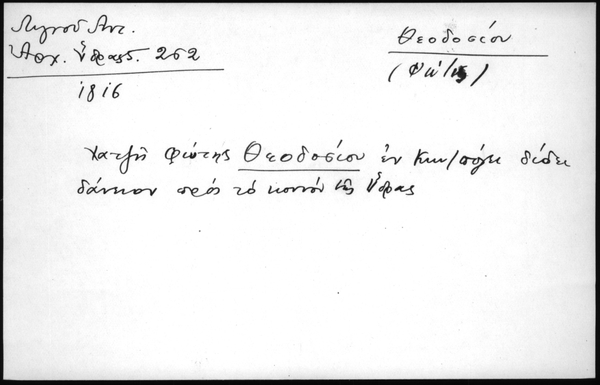 Λιγνοῦ Ἀντ.
Ἀρχ. Ὕδρας 5. 252
1816
Θεοδοσίου
(Φώτης)
Χατζῆ Φώτης Θεοδοσίου ἐν Κων/πόλει δίδει
δάνειον πρός τό κοινόν τῆς Ὕδρας